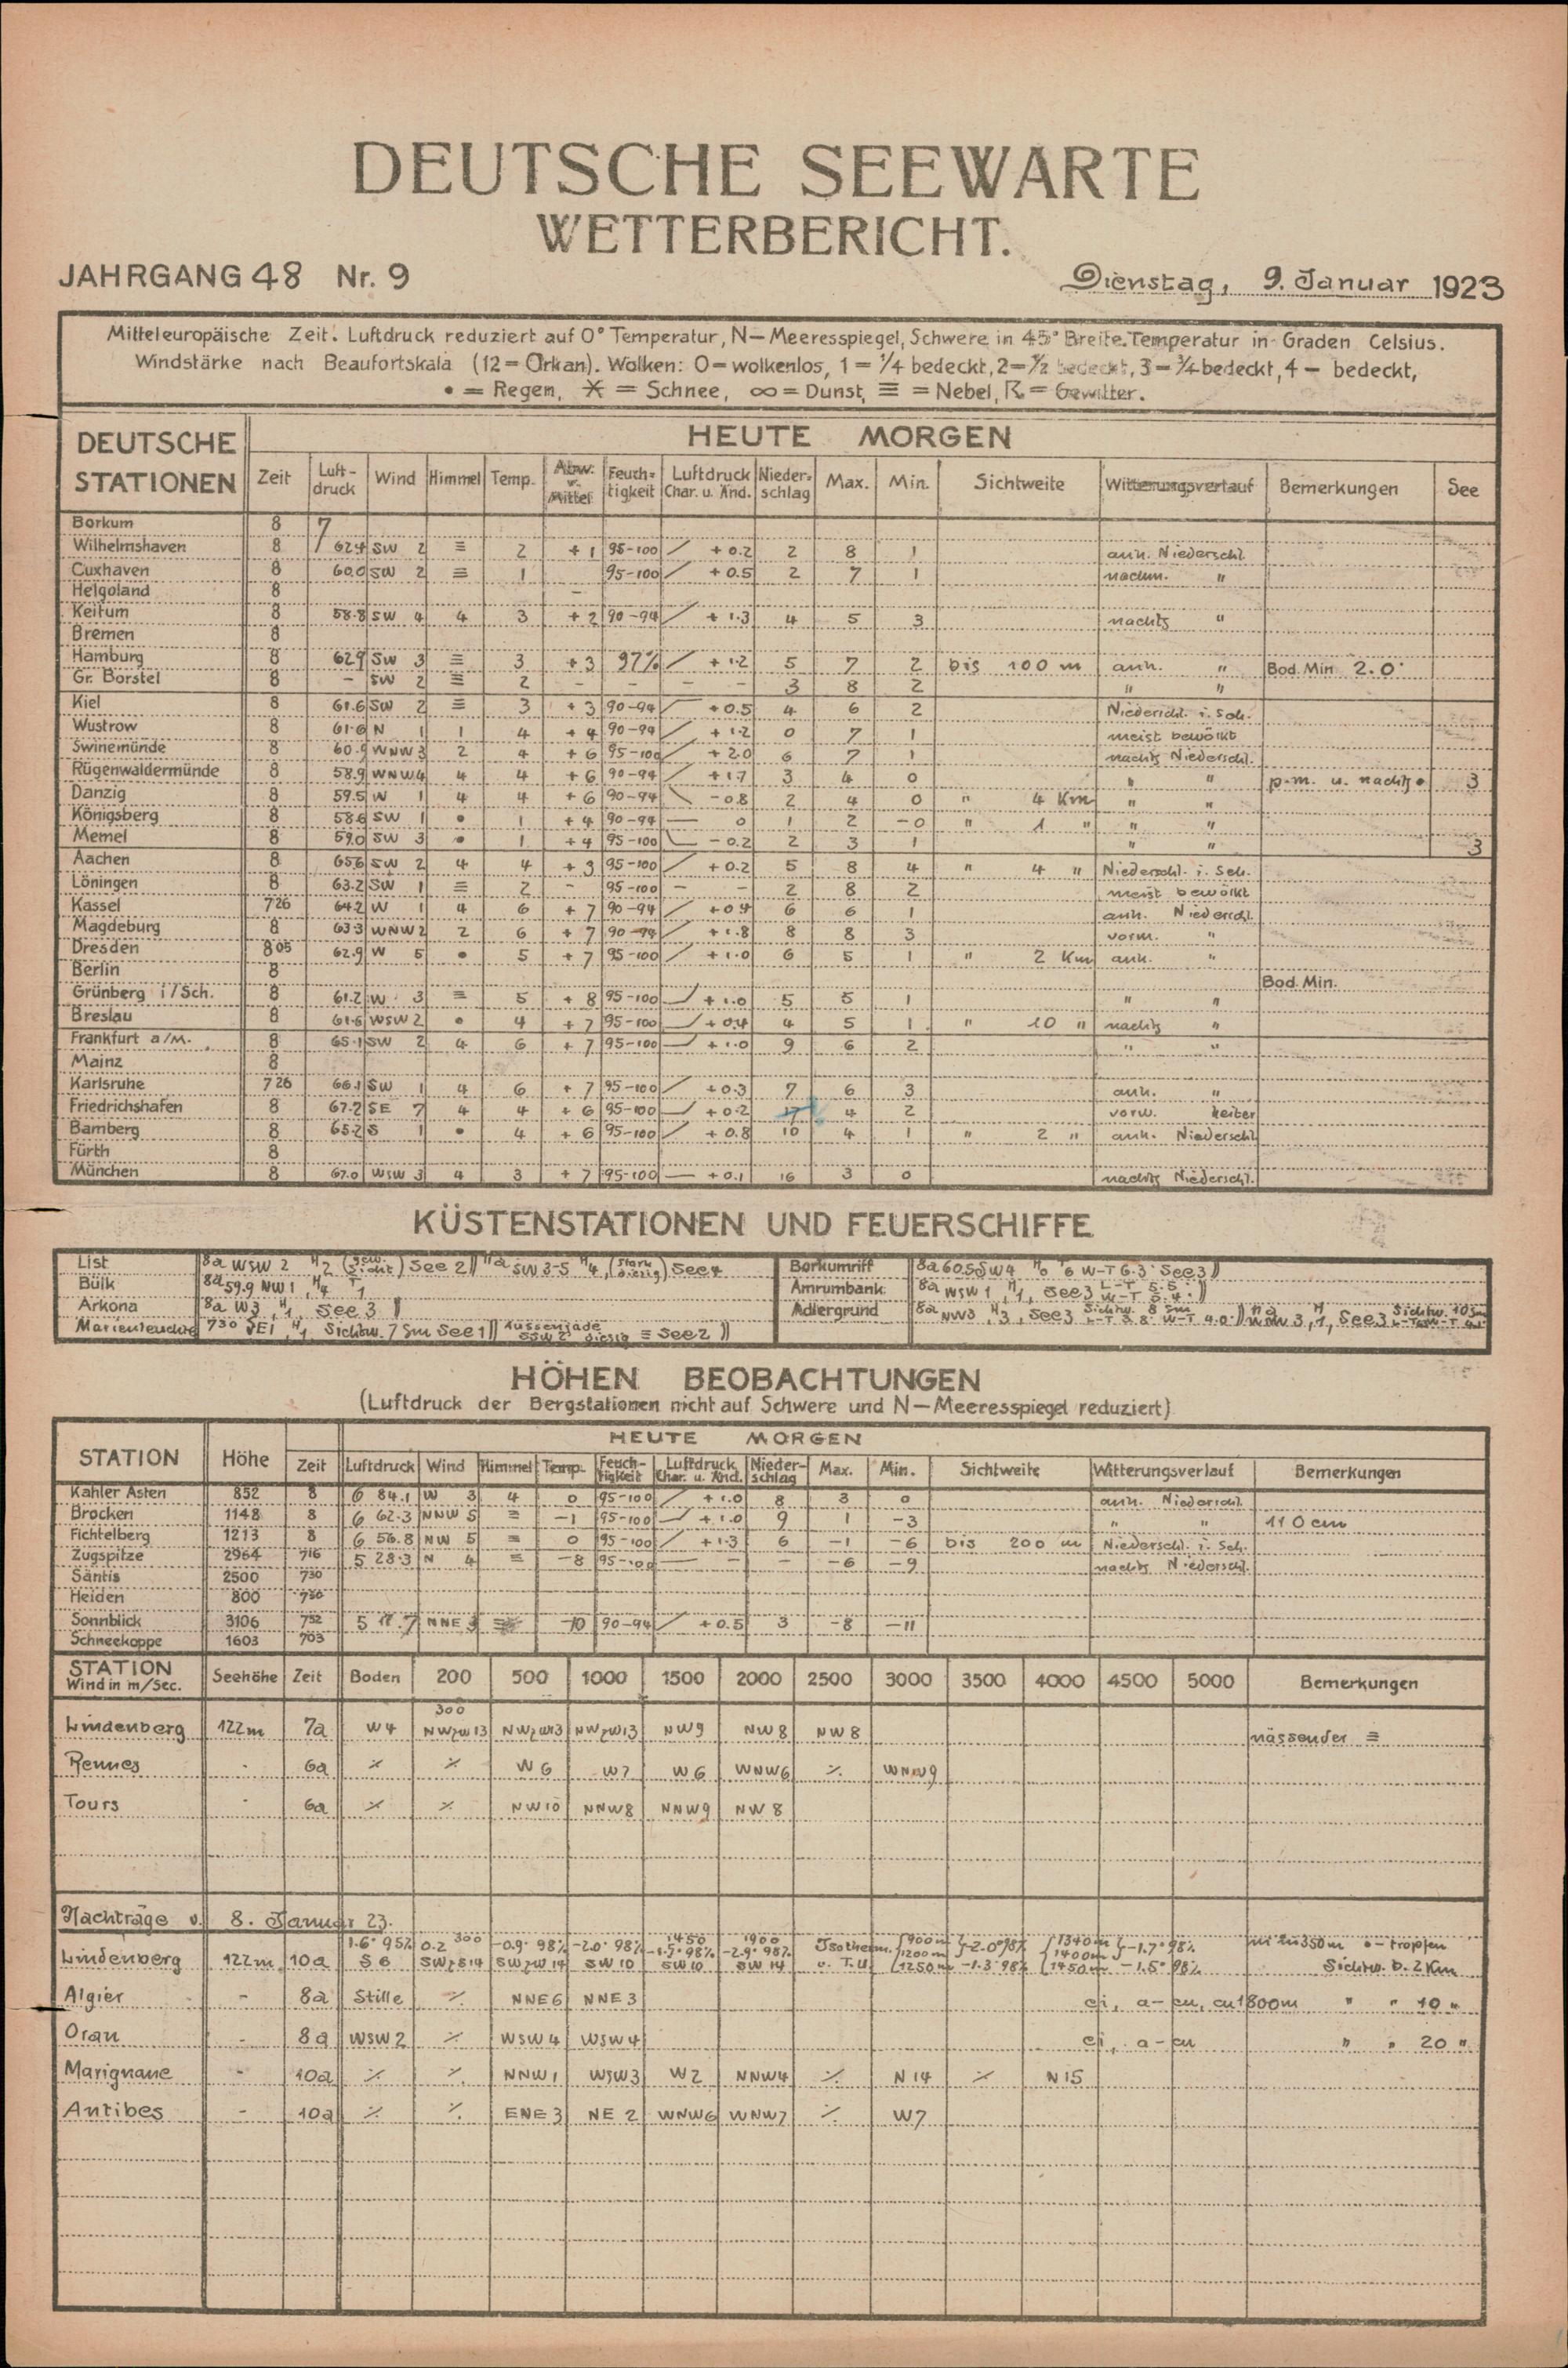 DEUTSCHE SEEWARTE
WETTERBERICHT.
JAHRGANG 48 Nr. 9 Dienstag, 9. Januar 1923
Mitteleuropäische Zeit. Luftdruck reduziert auf 0° Temperatur, N—Meeresspiegel, Schwere in 45° Breite. Temperatur in Graden Celsius.
Windstärke nach Beaufortskala (12 = Orkan). Wolken: 0 = wolkenlos, 1 = 1/4 bedeckt, 2 = 1/2 bedeckt, 3 = 3/4 bedeckt, 4 — bedeckt,
• = Regen, ✳ = Schnee, ∞ = Dunst, ≡ = Nebel, ☈ = Gewitter.
DEUTSCHE STATIONEN HEUTE MORGEN
Zeit Luft-druck Wind Himmel Temp. Abw. v. Mittel Feuch-tigkeit Luftdruck Char. u. Änd. Nieder-schlag Max. Min. Sichtweite Witterungsverlauf Bemerkungen See
Borkum 8 7
Wilhelmshaven 8 62.4 SW 2 ≡ 2 +1 95-100 / +0.2 2 8 1 anh. Niederschl.
Cuxhaven 8 60.0 SW 2 ≡ 1 95-100 / +0.5 2 7 1 nachm. "
Helgoland 8 -
Keitum 8 58.8 SW 4 4 3 +2 90-94 / +1.3 4 5 3 nachts "
Bremen 8
Hamburg 8 62.9 SW 3 ≡ 3 +3 97% / +1.2 5 7 2 bis 100 m anh. " Bod. Min. 2.0°
Gr. Borstel 8 - SW 2 ≡ 2 - - - - 3 8 2 " "
Kiel 8 61.6 SW 2 ≡ 3 +3 90-94 +0.5 4 6 2 Niederschl. i. Sch.
Wustrow 8 61.6 N 1 1 4 +4 90-94 / +1.2 0 7 1 meist bewölkt
Swinemünde 8 60.9 WNW 3 2 4 +6 95-100 / +2.0 6 7 1 nachts Niederschl.
Rügenwaldermünde 8 58.9 WNW 4 4 4 +6 90-94 / +1.7 3 4 0 " " p.m. u. nachts • 3
Danzig 8 59.5 W 1 4 4 +6 90-94 \ -0.8 2 4 0 " 4 Km " "
Königsberg 8 58.6 SW 1 • 1 +4 90-94 — 0 1 2 -0 " 1 " " "
Memel 8 59.0 SW 3 • 1 +4 95-100 -0.2 2 3 1 " " 3
Aachen 8 65.6 SW 2 4 4 +3 95-100 / +0.2 5 8 4 " 4 " Niederschl. i. Sch.
Löningen 8 63.2 SW 1 ≡ 2 - 95-100 - - 2 8 2 meist bewölkt
Kassel 7 26 64.2 W 1 4 6 +7 90-94 / +0.4 6 6 1 anh. Niederschl.
Magdeburg 8 63.3 WNW 2 2 6 +7 90-94 / +1.8 8 8 3 vorm. "
Dresden 8 05 62.9 W 5 • 5 +7 95-100 / +1.0 6 5 1 " 2 Km anh. "
Berlin 8 Bod. Min.
Grünberg i/Sch. 8 61.2 W 3 ≡ 5 +8 95-100 +1.0 5 5 1 " "
Breslau 8 61.6 WSW 2 • 4 +7 95-100 +0.4 4 5 1 " 10 " nachts "
Frankfurt a/M. 8 65.1 SW 2 4 6 +7 95-100 +1.0 9 6 2 " "
Mainz 8
Karlsruhe 7 26 66.1 SW 1 4 6 +7 95-100 / +0.3 7 6 3 anh. "
Friedrichshafen 8 67.2 SE 7 4 4 +6 95-100 +0.2 4 2 vorw. heiter
Bamberg 8 65.2 S 1 • 4 +6 95-100 / +0.8 10 4 1 " 2 " anh. Niederschl.
Fürth 8
München 8 67.0 WSW 3 4 3 +7 95-100 — +0.1 16 3 0 nachts Niederschl.
KÜSTENSTATIONEN UND FEUERSCHIFFE
List 8a WSW 2 H 2 See 2 || 11a SW 3-5 H 4, (stark diesig) See 4
Bülk 8a 59.9 NW 1, H 4 T 1
Arkona 8a W3, H 1, See 3 ||
Marienleuchte 7 30 SE 1, H 1, Sichtw. 7 Sm See 1 || Aussenjade SSW 2 diesig ≡ See 2 ||
Borkumriff 8a 60.5 SW 4 H 0 T 6 W-T 6.3 See 3 ||
Amrumbank 8a WSW 1, H 1, See 3 L-T 5.5 W-T 5.4 ||
Adlergrund 8a NW 3, H 3, See 3 Sichtw. 8 Sm L-T 3.8 W-T 4.0 || WNW 3, H 1, See 3 Sichtw. 10 Sm
HÖHEN BEOBACHTUNGEN
(Luftdruck der Bergstationen nicht auf Schwere und N—Meeresspiegel reduziert)
STATION Höhe HEUTE MORGEN
Zeit Luftdruck Wind Himmel Temp. Feuch-tigkeit Luftdruck Char. u. Änd. Nieder-schlag Max. Min. Sichtweite Witterungsverlauf Bemerkungen
Kahler Asten 852 8 6 84.1 W 3 4 0 95-100 / +1.0 8 3 0 anh. Niederschl.
Brocken 1148 8 6 62.3 NNW 5 ≡ -1 95-100 +1.0 9 1 -3 " " 110 cm
Fichtelberg 1213 8 6 56.8 NW 5 ≡ 0 95-100 / +1.3 6 -1 -6 bis 200 m Niederschl. i. Sch.
Zugspitze 2964 7 16 5 28.3 N 4 ≡ -8 95-100 — - - -6 -9 nachts Niederschl.
Säntis 2500 7 30
Heiden 800 7 30
Sonnblick 3106 7 52 5 17.7 NNE 3 ≡ -10 90-94 / +0.5 3 -8 -11
Schneekoppe 1603 7 03
STATION Wind in m/Sec. Seehöhe Zeit Boden 200 500 1000 1500 2000 2500 3000 3500 4000 4500 5000 Bemerkungen
300
Lindenberg 122m 7a W 4 NWzW 13 NWzW 13 NWzW 13 NW 9 NW 8 NW 8 nässender ≡
Rennes - 6a ·/. ·/. W 6 W 7 W 6 WNW 6 ·/. WNW 9
Tours - 6a ·/. ·/. NW 10 NNW 8 NNW 9 NW 8
Nachträge v. 8. Januar 23.
1.6° 95% 0.2 300 -0.9° 98% -2.0° 98% 1450 -1.5° 98% 1900 -2.9° 98%
Lindenberg 122m 10a S 6 SWzS 14 SWzW 14 SW 10 SW 10 SW 14 Isotherm. u. T.U. {900 m 1200 m} -2.0° 98% 1250 m -1.3° 98% {1340 m 1400 m} -1.7° 98% 1450 m -1.5° 98% in 350 m •-tropfen Sichtw. b. 2 Km
Algier - 8a Stille ·/. NNE 6 NNE 3 ci, a-cu, cu 1800m " " 10 "
Oran - 8a WSW 2 ·/. WSW 4 WSW 4 ci, a-cu " " 20 "
Marignane - 10a ·/. ·/. NNW 1 WSW 3 W 2 NNW 4 ·/. N 14 ·/. N 15
Antibes - 10a ·/. ·/. ENE 3 NE 2 WNW 6 WNW 7 ·/. W 7